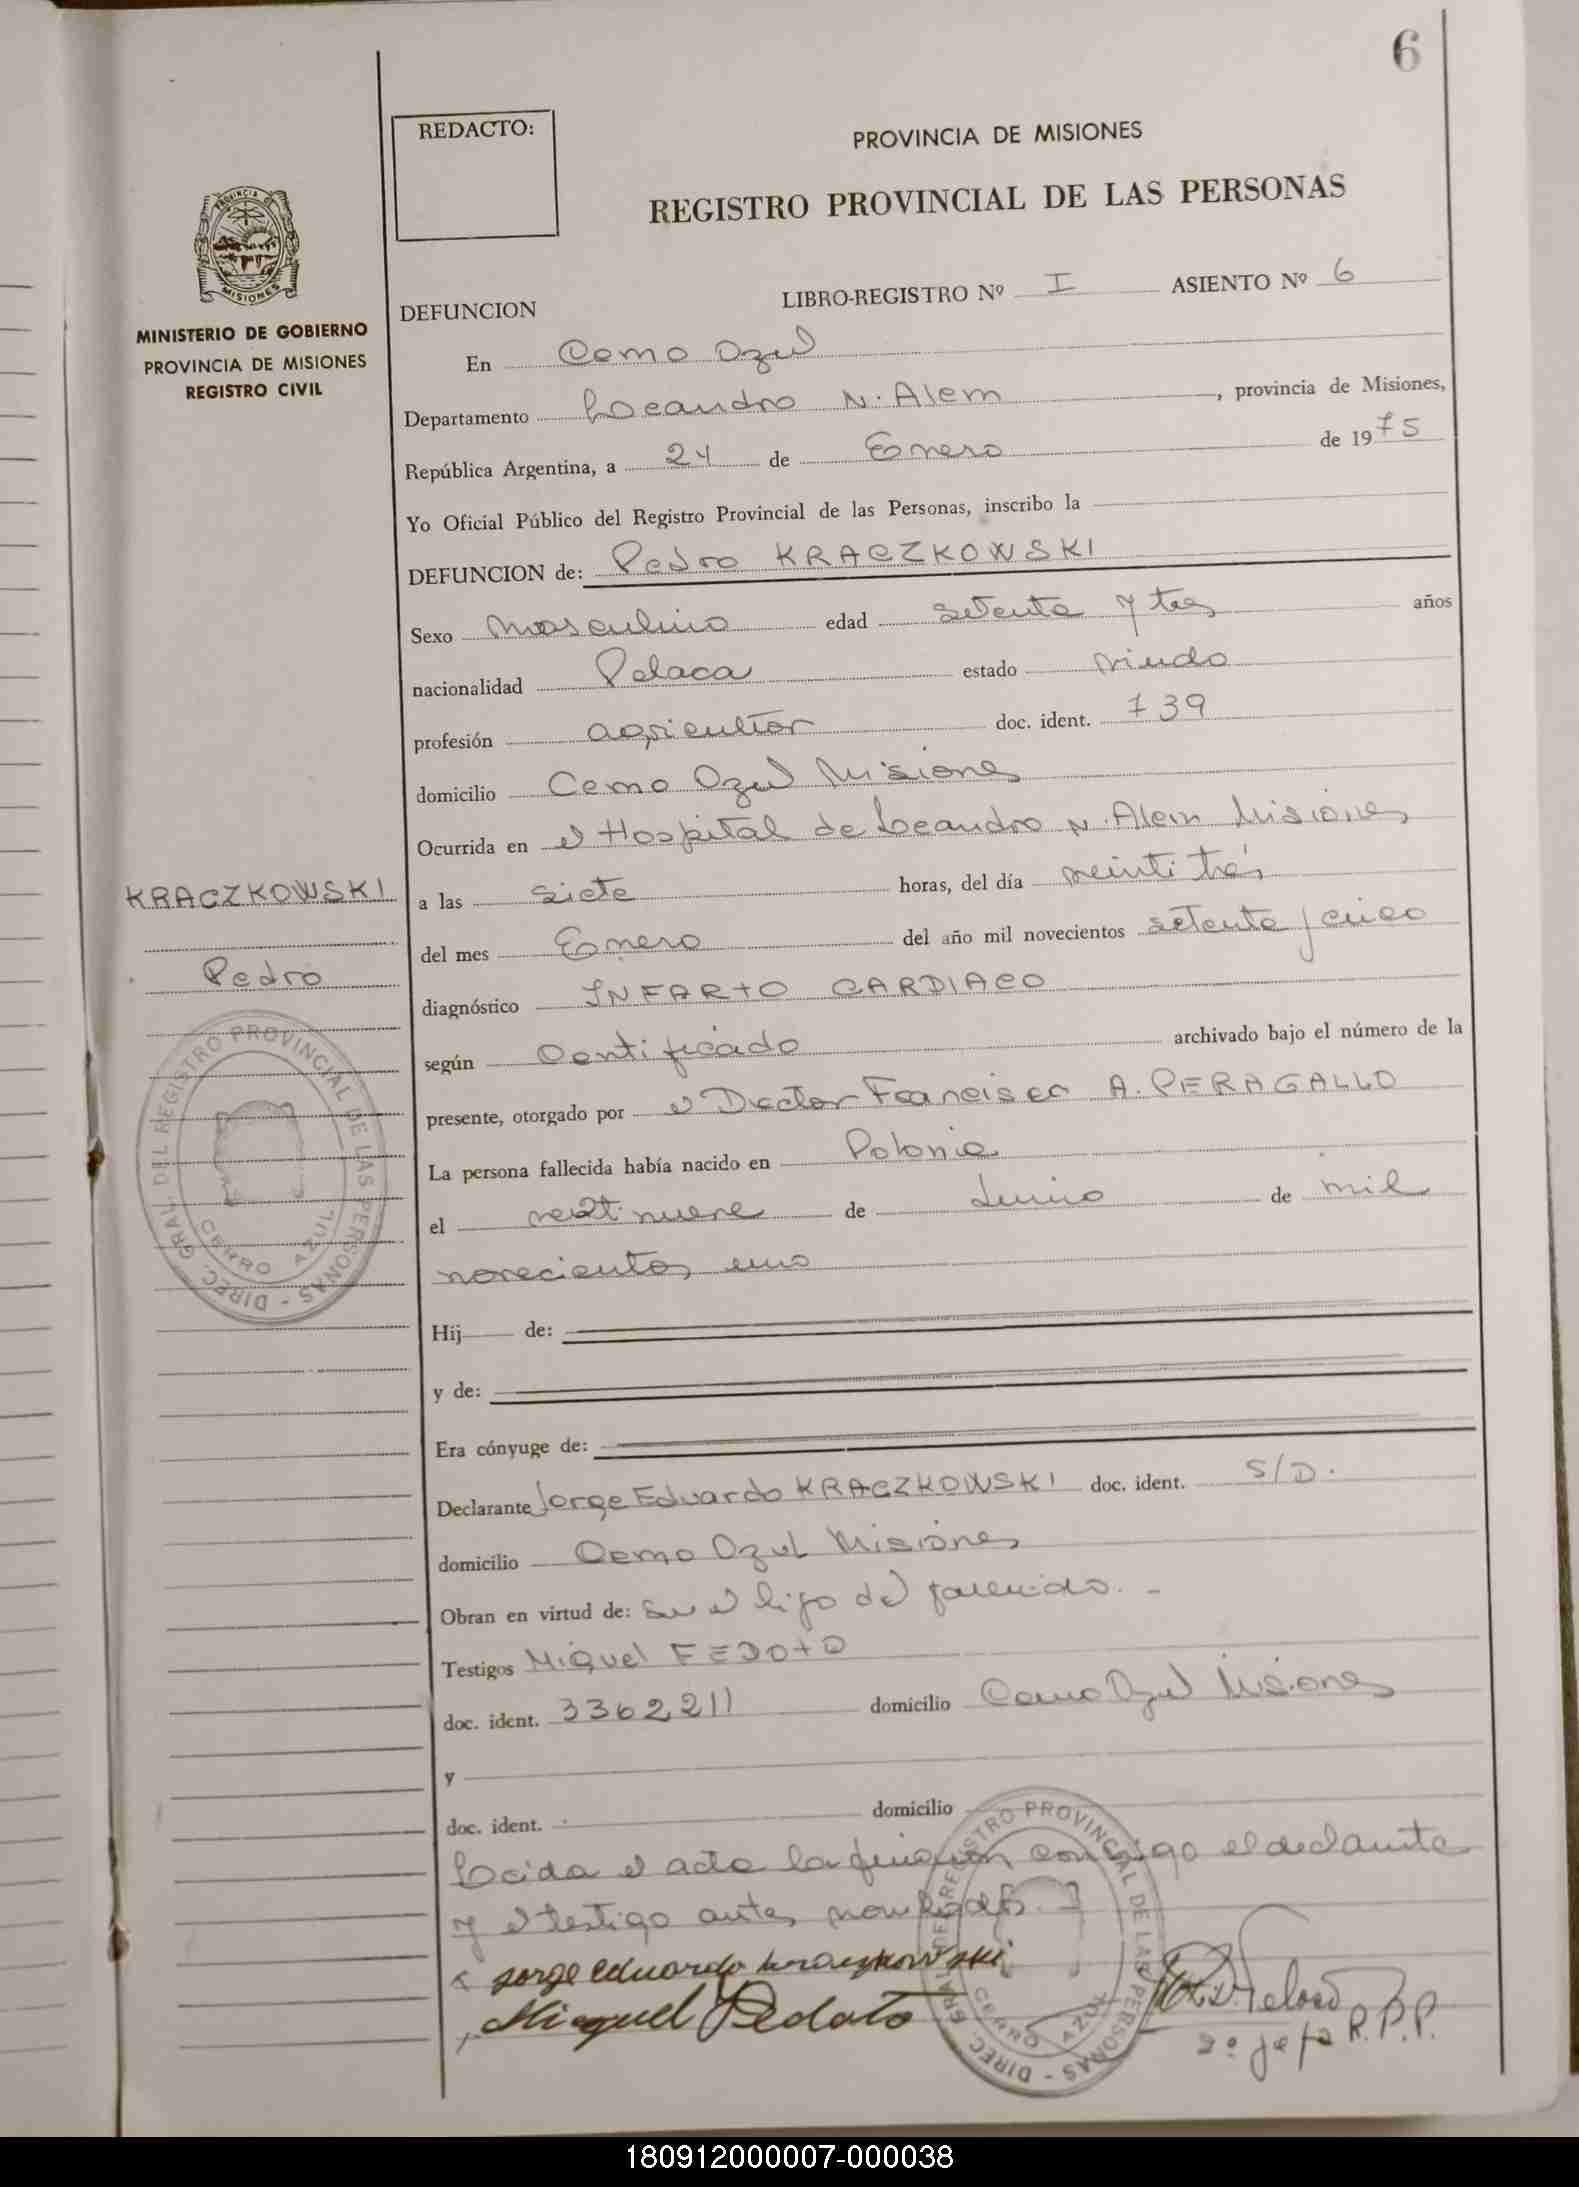 6
REDACTO:
PROVINCIA DE MISIONES
REGISTRO PROVINCIAL DE LAS PERSONAS
PROVINCIA DE
MISIONES
MINISTERIO DE GOBIERNO
PROVINCIA DE MISIONES
REGISTRO CIVIL
DEFUNCION LIBRO-REGISTRO Nº I ASIENTO Nº 6
En Cerro Azul
Departamento Leandro N. Alem, provincia de Misiones,
República Argentina, a 24 de Enero de 1975
Yo Oficial Público del Registro Provincial de las Personas, inscribo la
DEFUNCION de: Pedro KRACZKOWSKI
Sexo masculino edad setenta y tres años
nacionalidad Polaca estado viudo
profesión agricultor doc. ident. 739
domicilio Cerro Azul Misiones
Ocurrida en el Hospital de Leandro N. Alem Misiones
a las siete horas, del día veintitrés
del mes Enero del año mil novecientos setenta y cinco
diagnóstico INFARTO CARDIACO
según Certificado archivado bajo el número de la
presente, otorgado por el Doctor Francisco A. PERAGALLO
La persona fallecida había nacido en Polonia
el veintinueve de Junio de mil
novecientos uno
Hij de:
y de:
Era cónyuge de:
Declarante Jorge Eduardo KRACZKOWSKI doc. ident. S/D.
domicilio Cerro Azul Misiones
Obran en virtud de: Ser el hijo del fallecido. -
Testigos Miguel FEDOTO
doc. ident. 3362211 domicilio Cerro Azul Misiones
y
doc. ident. domicilio
Leida el acta la firman conmigo el declarante
y el testigo antes nombrados.
Jorge Eduardo Kraczkowski
Miguel Fedoto
2º Jefe R.P.P.
KRACZKOWSKI
Pedro
DIREC. GRAL. DEL REGISTRO PROVINCIAL DE LAS PERSONAS -
CERRO AZUL
DIREC. GRAL. DEL REGISTRO PROVINCIAL DE LAS PERSONAS -
CERRO AZUL
180912000007-000038